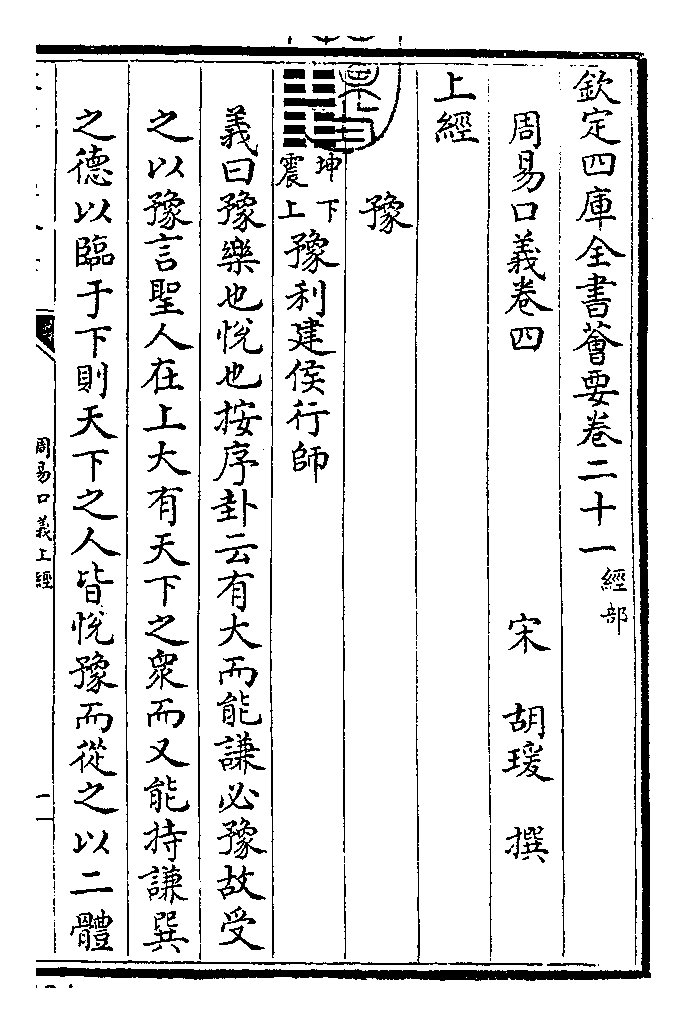 欽定四庫全書薈要卷二十一 經部
周易口義卷四 宋 胡瑗 撰
上經
豫
坤下
震上
豫利建侯行師
義曰豫樂也悅也按序卦云有大而能謙必豫故受
之以豫言聖人在上大有天下之衆而又能持謙巽
之德以臨于下則天下之人皆悅豫而從之以二體
周易口義上經
一